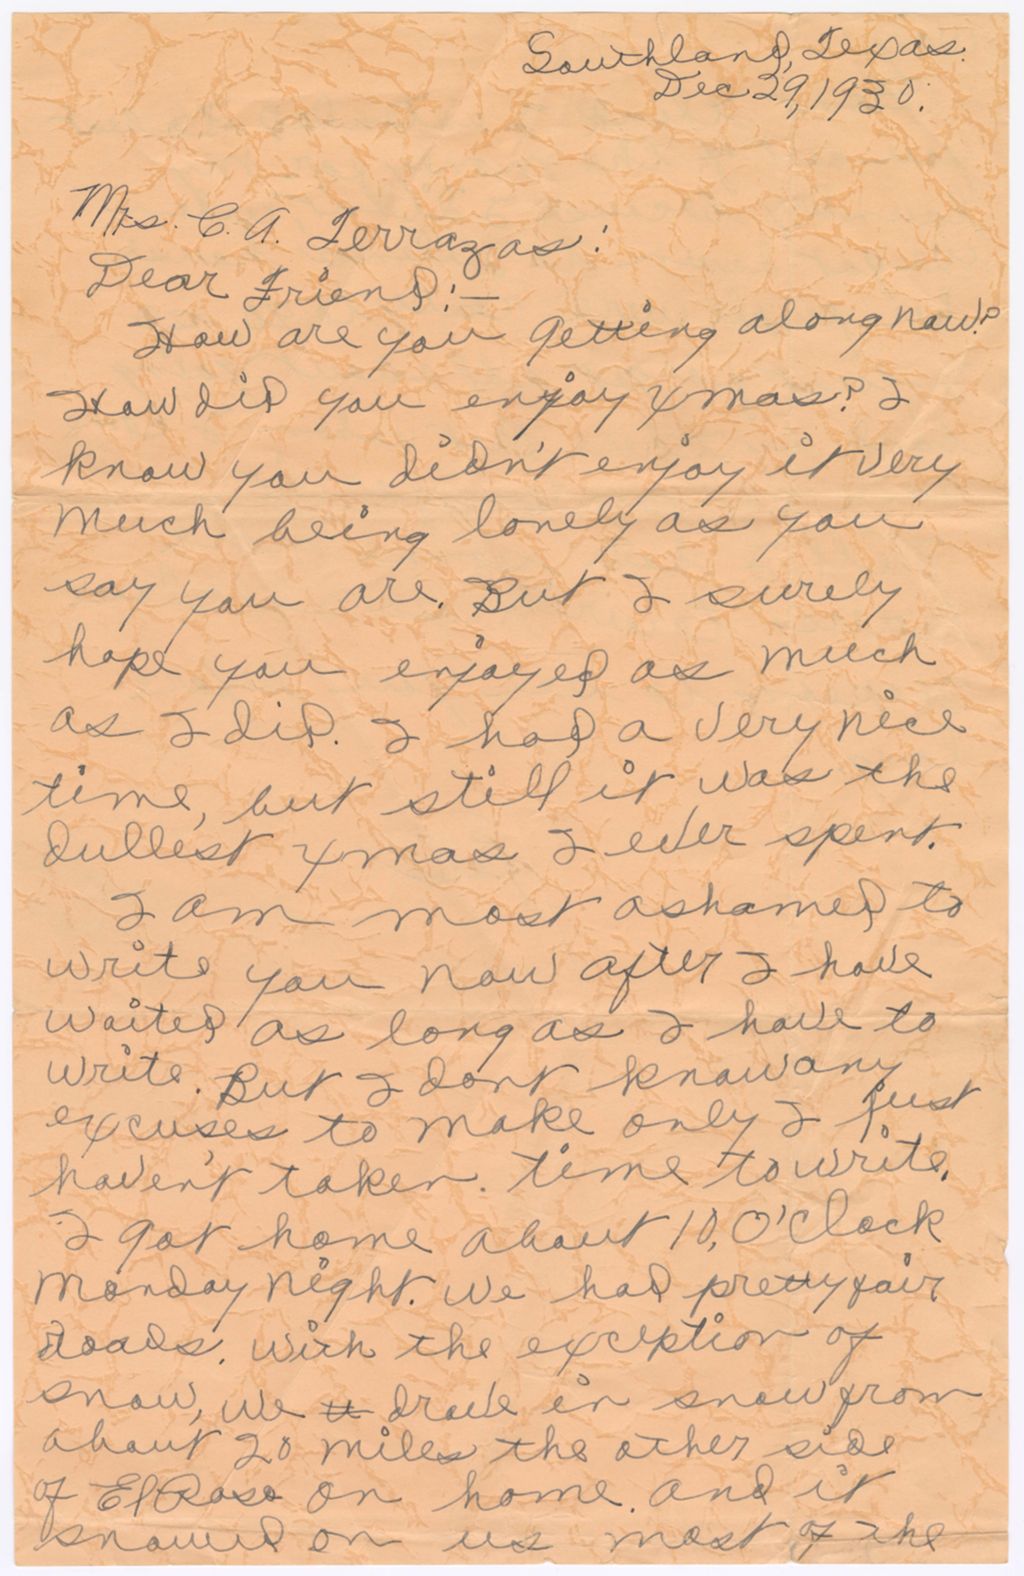 Southland, Texas.
Dec 29, 1930.
Mrs. C. A. Terrazas:
Dear Friend:—
How are you getting along now?
How did you enjoy xmas? I
know you didn't enjoy it very
much being lonely as you
say you are. But I surely
hope you enjoyed as much
as I did. I had a very nice
time, but still it was the
dullest xmas I ever spent.
I am most ashamed to
write you now after I have
waited as long as I have to
write. But I dont know any
excuses to make only I just
haven't taken. time to write.
I got home about 10, O'Clock
Monday night. We had pretty fair
roads. With the exception of
snow, we drove in snow from
about 20 miles the other side
of El Paso on home. and it
snowed on us most of the